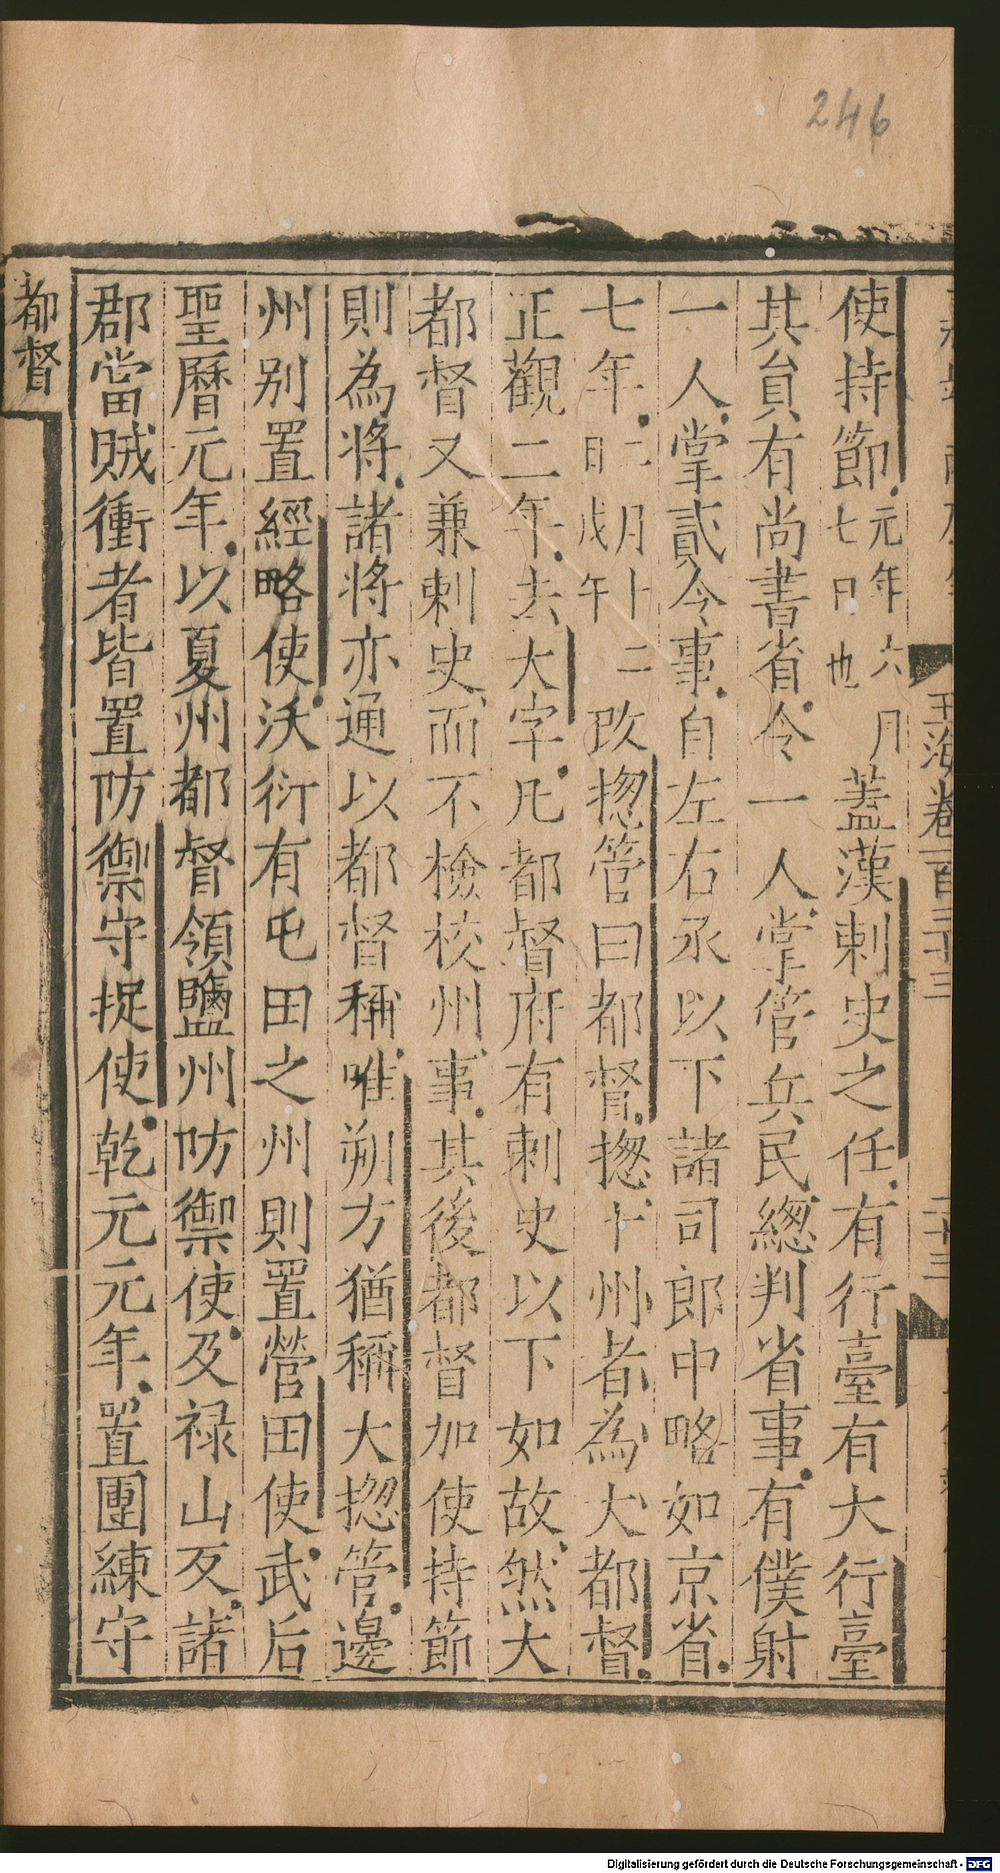 246
玉海卷一百三十三
使持節元年六月七日也蓋漢刺史之任有行臺有大行臺
其貟有尚書省令一人掌管兵民緫判省事有僕射
一人掌貳令事自左右丞以下諸司郎中略如京省
七年二月十二日戊午改揔管曰都督揔十州者為大都督
正觀二年去大字凡都督府有刺史以下如故然大
都督又兼刺史而不檢校州事其後都督加使持節
則為將諸將亦通以都督稱唯朔方猶稱大揔管邊
州别置經略使沃衍有屯田之州則置營田使武后
聖曆元年以夏州都督領鹽州防禦使及禄山反諸
郡當賊衝者皆置防禦守捉使乾元元年置團練守
都督
Digitalisierung gefördert durch die Deutsche Forschungsgemeinschaft - DFG